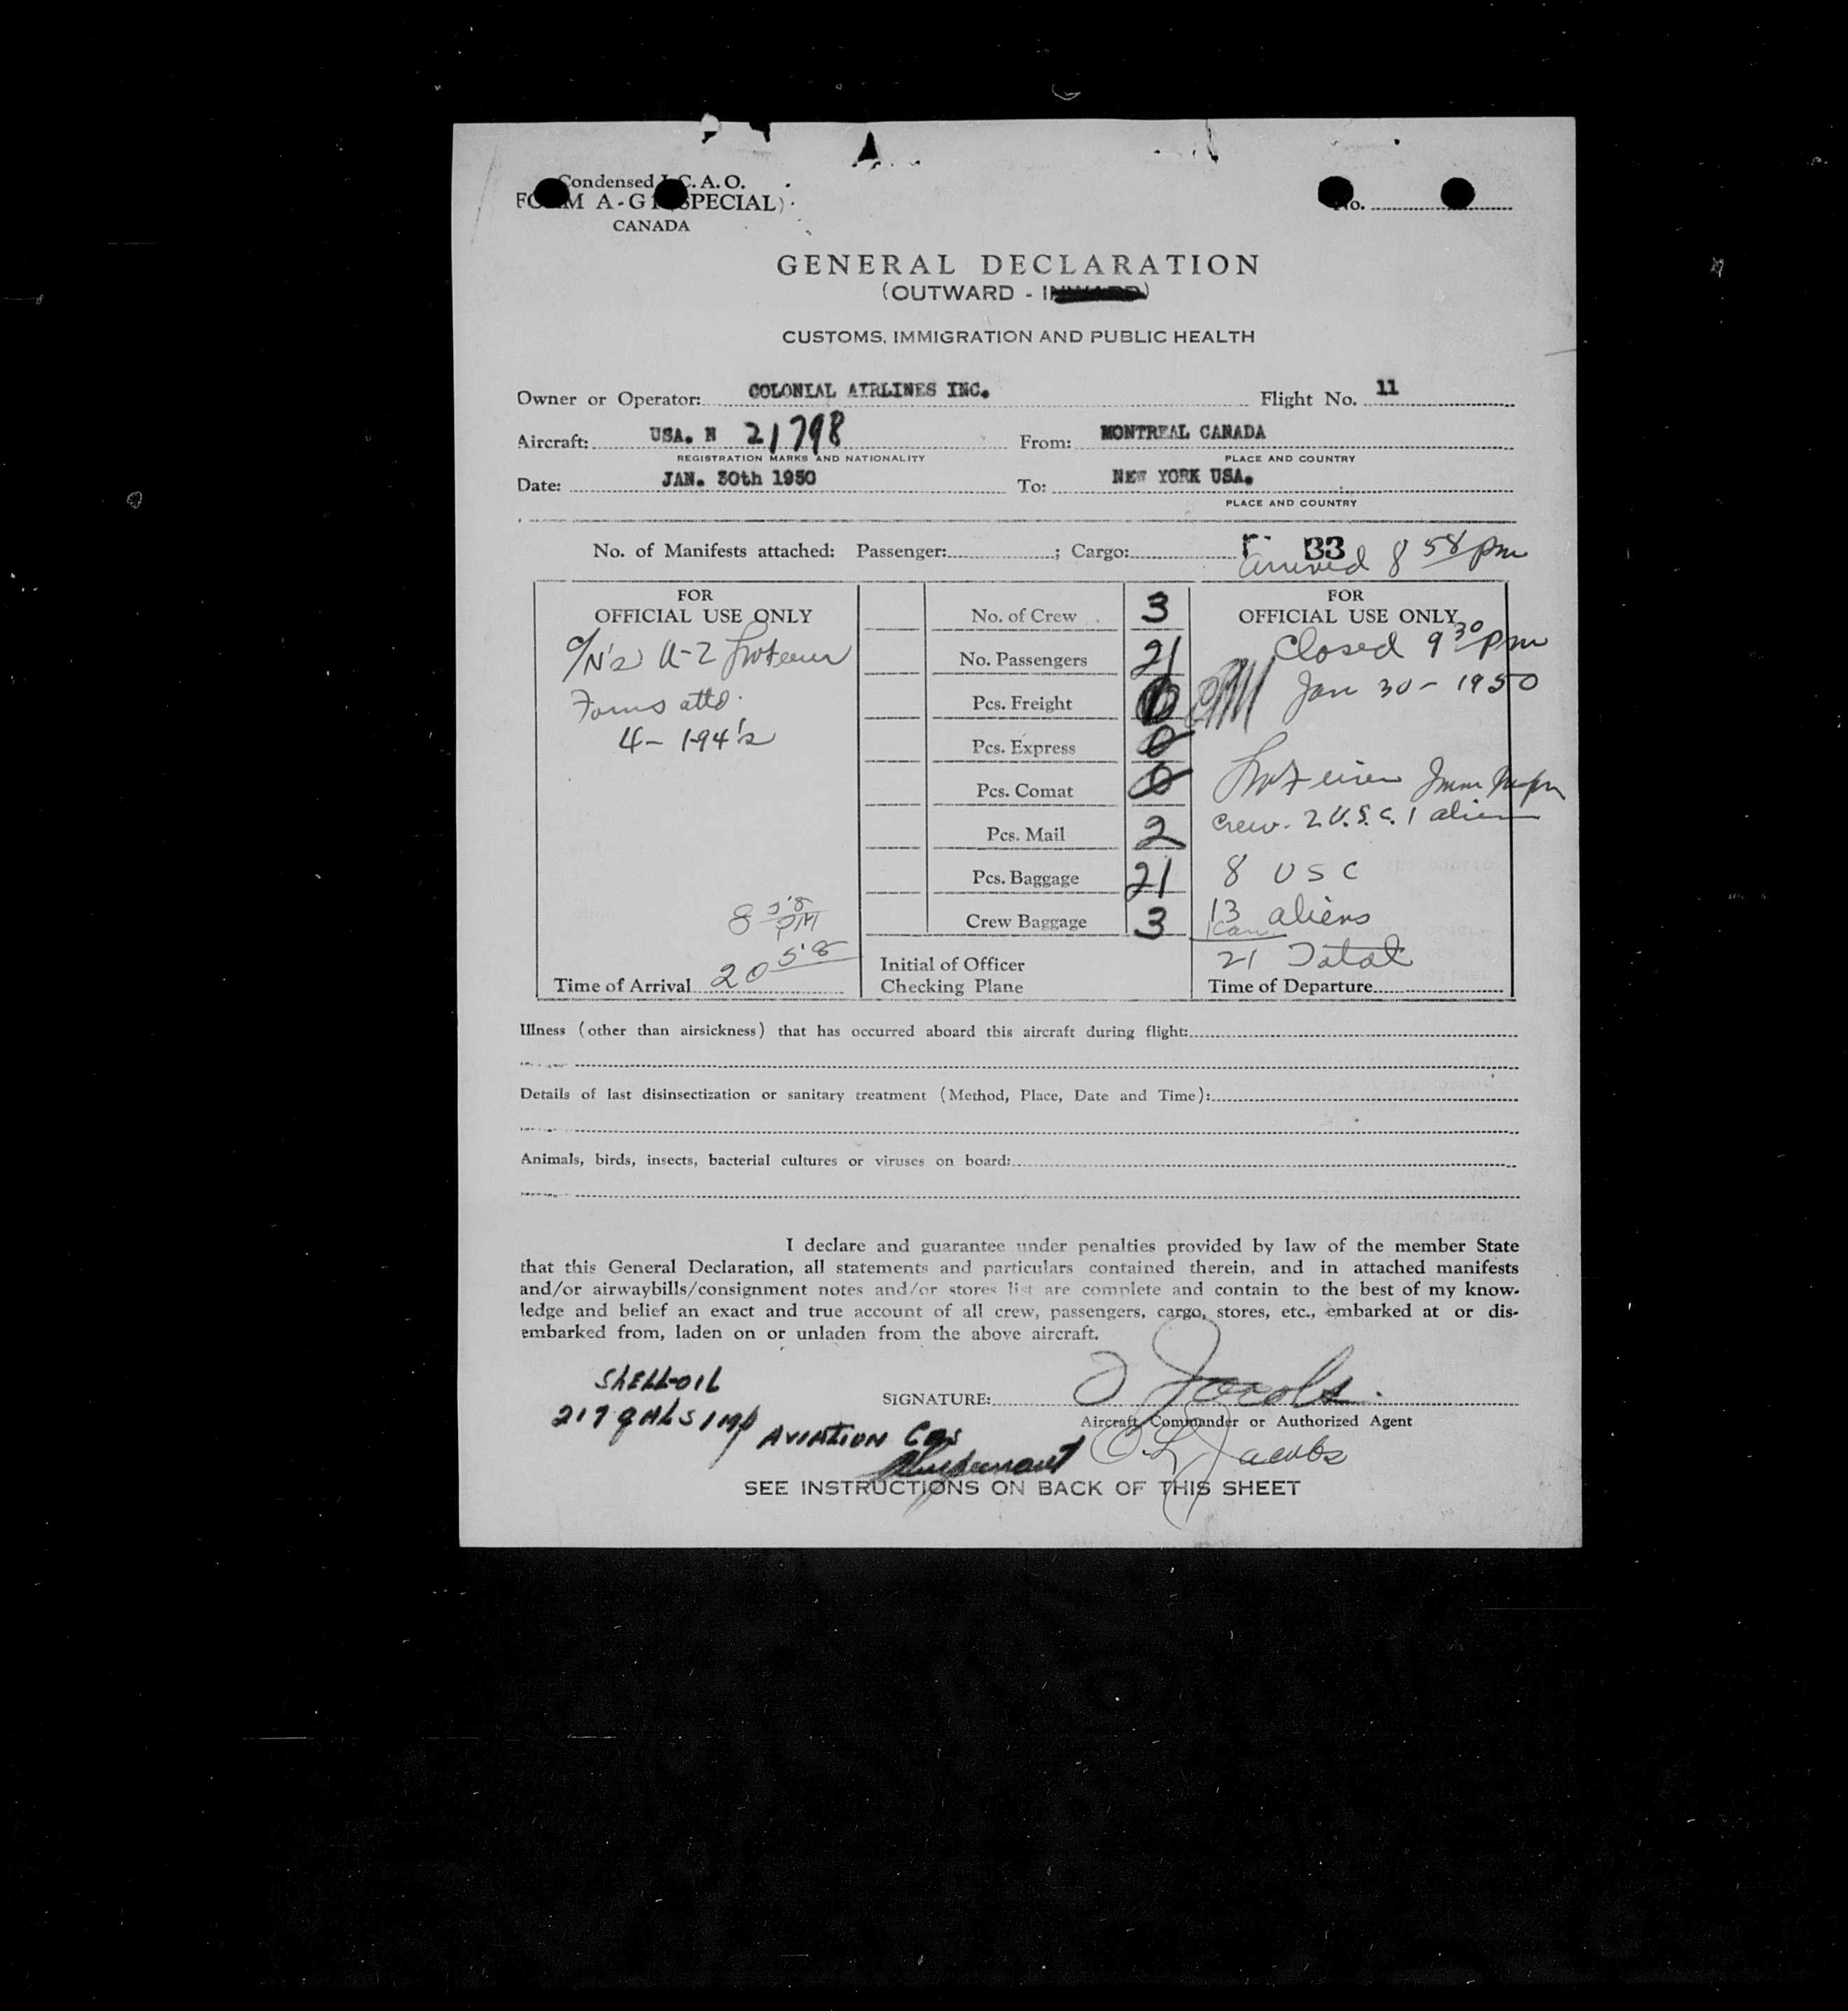 Condensed I.C.A.O.
FORM A-G1 (SPECIAL)
CANADA
No.
GENERAL DECLARATION
(OUTWARD - INWARD)
CUSTOMS, IMMIGRATION AND PUBLIC HEALTH
Owner or Operator: COLONIAL AIRLINES INC. Flight No. 11
Aircraft: USA. N 21798 From: MONTREAL CANADA
REGISTRATION MARKS AND NATIONALITY PLACE AND COUNTRY
Date: JAN. 30th 1950 To: NEW YORK USA.
PLACE AND COUNTRY
No. of Manifests attached: Passenger: ; Cargo: 33
arrived 8 58 pm
FOR
OFFICIAL USE ONLY
Forms attd.
4- 194's
8 58 PM
20 58
Time of Arrival
No. of Crew 3
No. Passengers 21
Pcs. Freight
Pcs. Express 0
Pcs. Comat 0
Pcs. Mail 2
Pcs. Baggage 21
Crew Baggage 3
Initial of Officer
Checking Plane
FOR
OFFICIAL USE ONLY
Closed 9 30 pm
Jan 30 - 1950
Crew - 2 U.S.C. 1 alien
8 USC
13 aliens
21 Total
Time of Departure
Illness (other than airsickness) that has occurred aboard this aircraft during flight:
Details of last disinsectization or sanitary treatment (Method, Place, Date and Time):
Animals, birds, insects, bacterial cultures or viruses on board:
I declare and guarantee under penalties provided by law of the member State
that this General Declaration, all statements and particulars contained therein, and in attached manifests
and/or airwaybills/consignment notes and/or stores list are complete and contain to the best of my know-
ledge and belief an exact and true account of all crew, passengers, cargo, stores, etc., embarked at or dis-
embarked from, laden on or unladen from the above aircraft.
SHELL-OIL
217 GALS IMP AVIATION GAS
SIGNATURE: J Jacobs.
Aircraft Commander or Authorized Agent
Jacobs
SEE INSTRUCTIONS ON BACK OF THIS SHEET